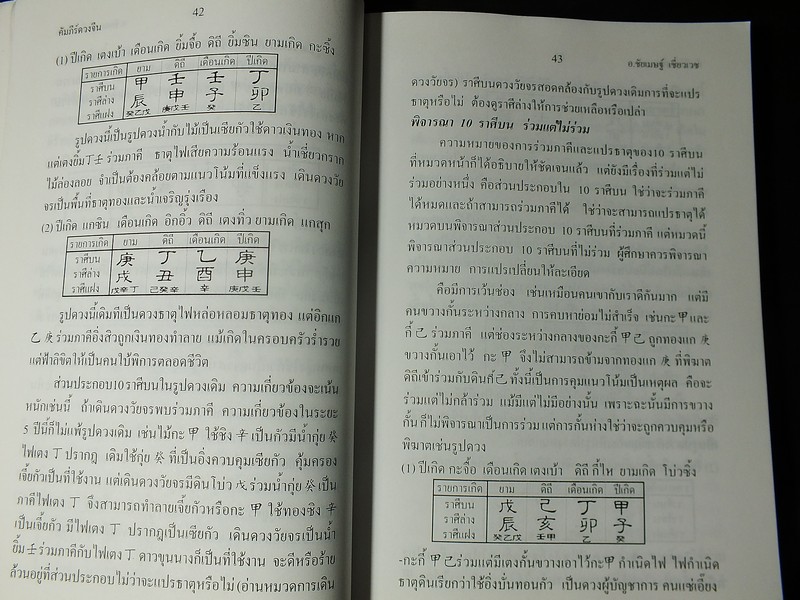 42
คัมภีร์ดวงจีน
(1) ปีเกิด เตงเบ้า เดือนเกิด ยิ้มจื้อ ดิถี ยิ้มซิน ยามเกิด กะซิ้ง
รายการเกิด ยาม ดิถี เดือนเกิด ปีเกิด
ราศีบน 甲 壬 壬 丁
ราศีล่าง 辰 申 子 卯
ราศีแฝง 癸乙戊 庚戊壬 癸 乙
รูปดวงนี้เป็นรูปดวงน้ำกับไม้เป็นเซียกัวใช้ดาวเงินทอง หาก
แต่เตงยิ้ม丁壬ร่วมภาคี ธาตุไฟเสียความร้อนแรง น้ำเชี่ยวกราก
ไม้ล่องลอย จำเป็นต้องคล้อยตามแนวโน้มที่แข็งแรง เดินดวงวัย
จรเป็นพื้นที่ธาตุทองและน้ำเจริญรุ่งเรือง
(2) ปีเกิด แกซิน เดือนเกิด อิกอิ้ว ดิถี เตงทิ่ว ยามเกิด แกสุก
รายการเกิด ยาม ดิถี เดือนเกิด ปีเกิด
ราศีบน 庚 丁 乙 庚
ราศีล่าง 戌 丑 酉 申
ราศีแฝง 戊辛丁 己癸辛 辛 庚戊壬
รูปดวงนี้เดิมทีเป็นดวงธาตุไฟหล่อหลอมธาตุทอง แต่อิกแก
乙庚ร่วมภาคีอิ่งสิวถูกเงินทองทำลาย แม้เกิดในครอบครัวร่ำรวย
แต่ฟ้าลิขิตให้เป็นคนใบ้พิการตลอดชีวิต
ส่วนประกอบ10ราศีบนในรูปดวงเดิม ความเกี่ยวข้องจะเน้น
หนักเช่นนี้ ถ้าเดินดวงวัยจรพบร่วมภาคี ความเกี่ยวข้องในระยะ
5 ปีนี้ก็ไม่แพ้รูปดวงเดิม เช่นไม้กะ甲 ใช้ซิง辛เป็นกัวมีน้ำกุ่ย癸
ไฟเตง丁 ปรากฏ เดิมใช้กุ่ย癸ที่เป็นอิ่งควบคุมเซียกัว คุ้มครอง
เจี้ยกัวเป็นที่ใช้งาน แต่เดินดวงวัยจรมีดินโบ่ว戊ร่วมน้ำกุ่ย癸เป็น
ภาคีไฟเตง丁 จึงสามารถทำลายเจี้ยกัวหรือกะ甲 ใช้ทองซิง辛
เป็นเจี้ยกัว มีไฟเตง丁 ปรากฏเป็นเซียกัว เดินดวงวัยจรเป็นน้ำ
ยิ้ม壬ร่วมภาคีกับไฟเตง丁ดาวขุนนางก็เป็นที่ใช้งาน จะดีหรือร้าย
ล้วนอยู่ที่ส่วนประกอบไม่ว่าจะแปรธาตุหรือไม่(อ่านหมวดการเดิน
43
อ.ชัยเมษฐ์ เชี่ยวเวช
ดวงวัยจร) ราศีบนดวงวัยจรสอดคล้องกับรูปดวงเดิมการที่จะแปร
ธาตุหรือไม่ ต้องดูราศีล่างให้การช่วยเหลือหรือเปล่า
พิจารณา 10 ราศีบน ร่วมแต่ไม่ร่วม
ความหมายของการร่วมภาคีและแปรธาตุของ10 ราศีบน
ที่หมวดหน้าก็ได้อธิบายให้ชัดเจนแล้ว แต่ยังมีเรื่องที่ร่วมแต่ไม่
ร่วมอย่างหนึ่ง คือส่วนประกอบใน 10 ราศีบน ใช่ว่าจะร่วมภาคี
ได้หมดและถ้าสามารถร่วมภาคีได้ ใช่ว่าจะสามารถแปรธาตุได้
หมดบนพิจารณาส่วนประกอบ 10 ราศีบนที่ร่วมภาคี แต่หมวดนี้
พิจารณาส่วนประกอบ 10 ราศีบนที่ไม่ร่วม ผู้ศึกษาควรพิจารณา
ความหมาย การแปรเปลี่ยนให้ละเอียด
คือมีการเว้นช่อง เช่นเหมือนคนเขากับเราดีกันมาก แต่มี
คนขวางกั้นระหว่างกลาง การคบหาย่อมไม่สำเร็จ เช่นกะ甲และ
กี้己ร่วมภาคี แต่ช่องระหว่างกลางของกะกี้甲己ถูกทองแก庚
ขวางกั้นเอาไว้ กะ甲 จึงไม่สามารถข้ามจากทองแก庚ที่พิฆาต
ดิถีเข้าร่วมกับดินกี้己ทั้งนี้เป็นการคุมแนวโน้มเป็นเหตุผล คือจะ
ร่วมแต่ไม่กล้าร่วม แม้มีแต่ไม่มีอย่างนั้น เพราะฉะนั้นมีการขวาง
กั้นก็ไม่พิจารณาเป็นการร่วมแต่การกั้นห่างใช่ว่าจะถูกควบคุมหรือ
พิฆาตเช่นรูปดวง
(1) ปีเกิด กะจื้อ เดือนเกิด เตงเบ้า ดิถี กี้ไห ยามเกิด โบ่วซิ้ง
รายการเกิด ยาม ดิถี เดือนเกิด ปีเกิด
ราศีบน 戊 己 丁 甲
ราศีล่าง 辰 亥 卯 子
ราศีแฝง 癸乙戊 壬甲 乙 癸
-กะกี้ 甲己ร่วมแต่มีเตงกั้นขวางเอาไว้กะ甲กำเนิดไฟ ไฟกำเนิด
ธาตุดินเรียกว่าใช้อิ่งบั่นทอนกัว เป็นดวงผู้บัญชาการ คนแซ่เอี๊ยง